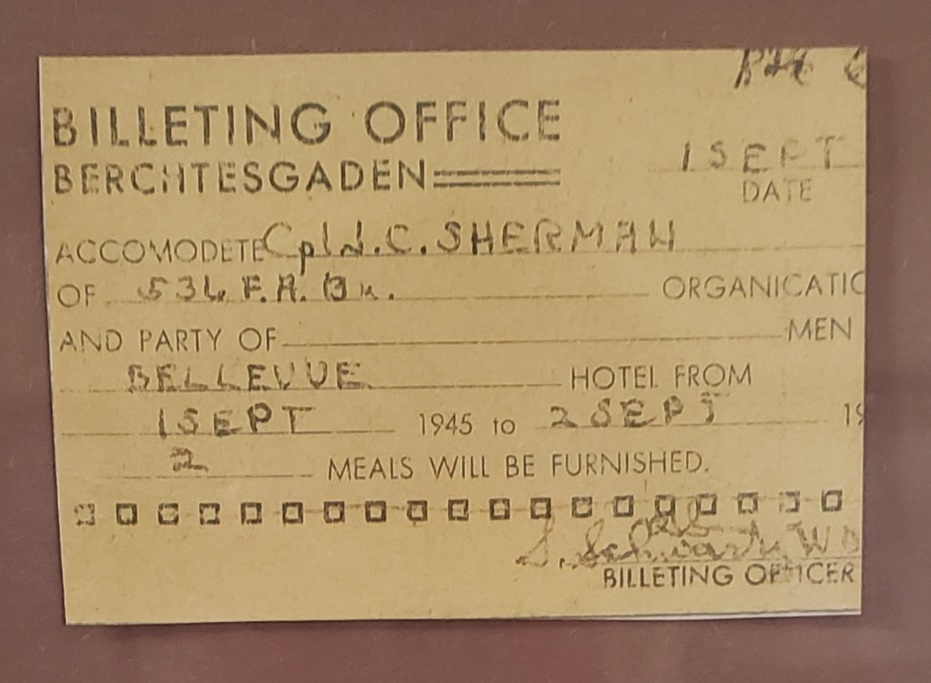 BILLETING OFFICE
BERCHTESGADEN
1 SEPT
DATE
ACCOMODETE Cpl J.C. SHERMAN
OF 536 F.A. Bn. ORGANICATIO
AND PARTY OF MEN
BELLEVUE HOTEL FROM
1 SEPT 1945 to 2 SEPT 19
2 MEALS WILL BE FURNISHED.
WO
BILLETING OFFICER